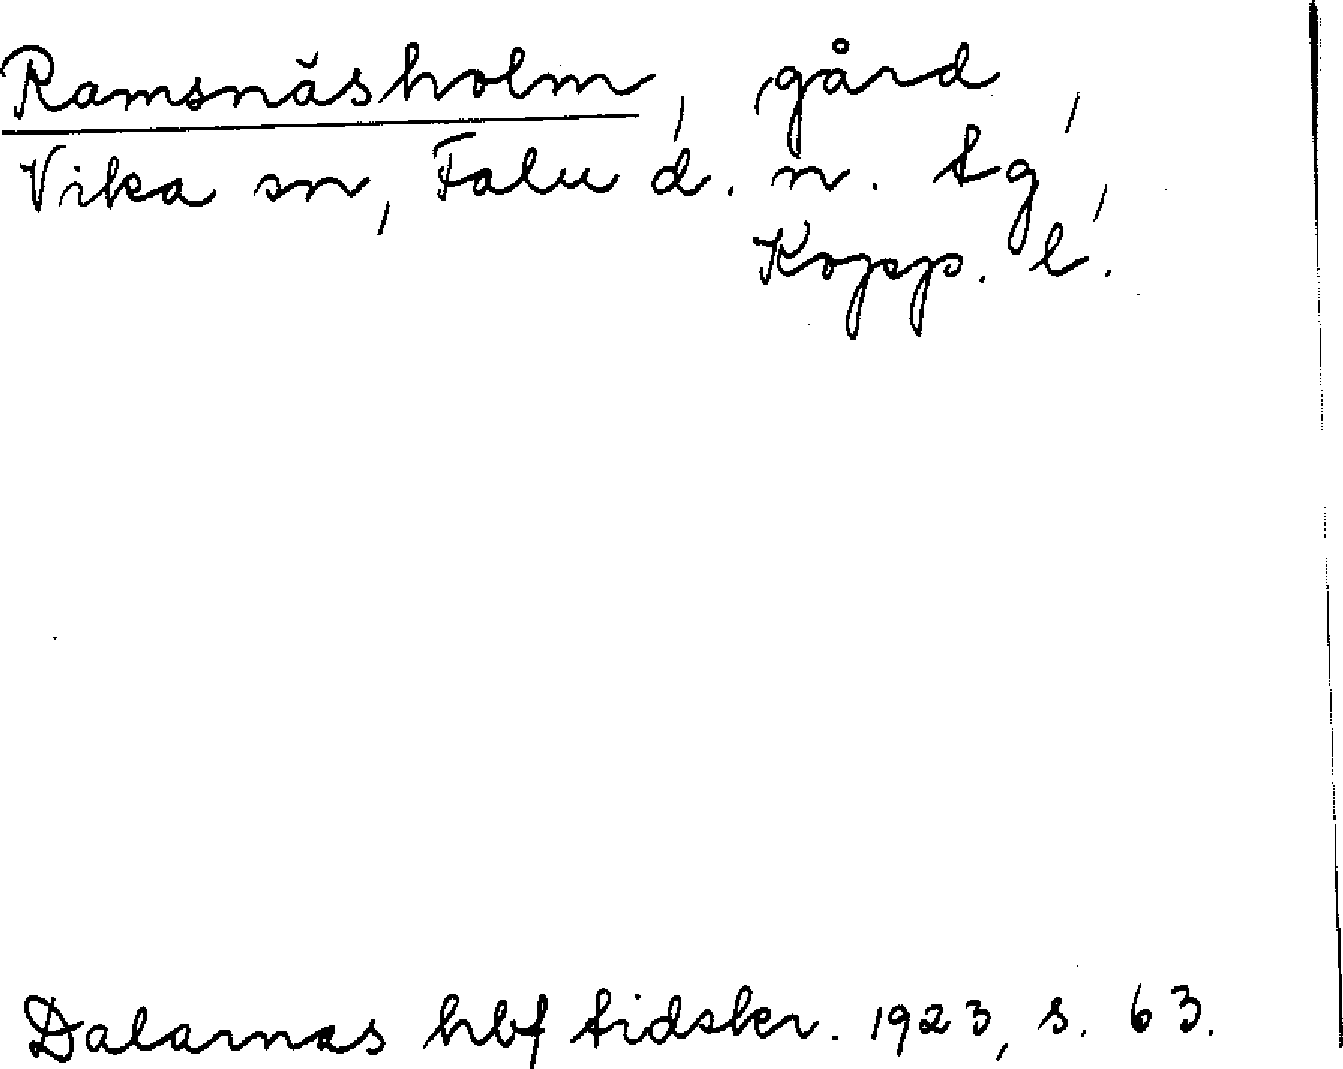 Ramsnäsholm, gård,
Vika sn, Falu d. n. tg,
Kopp. l.
Dalarnas hbf tidskr. 1923, s. 63.